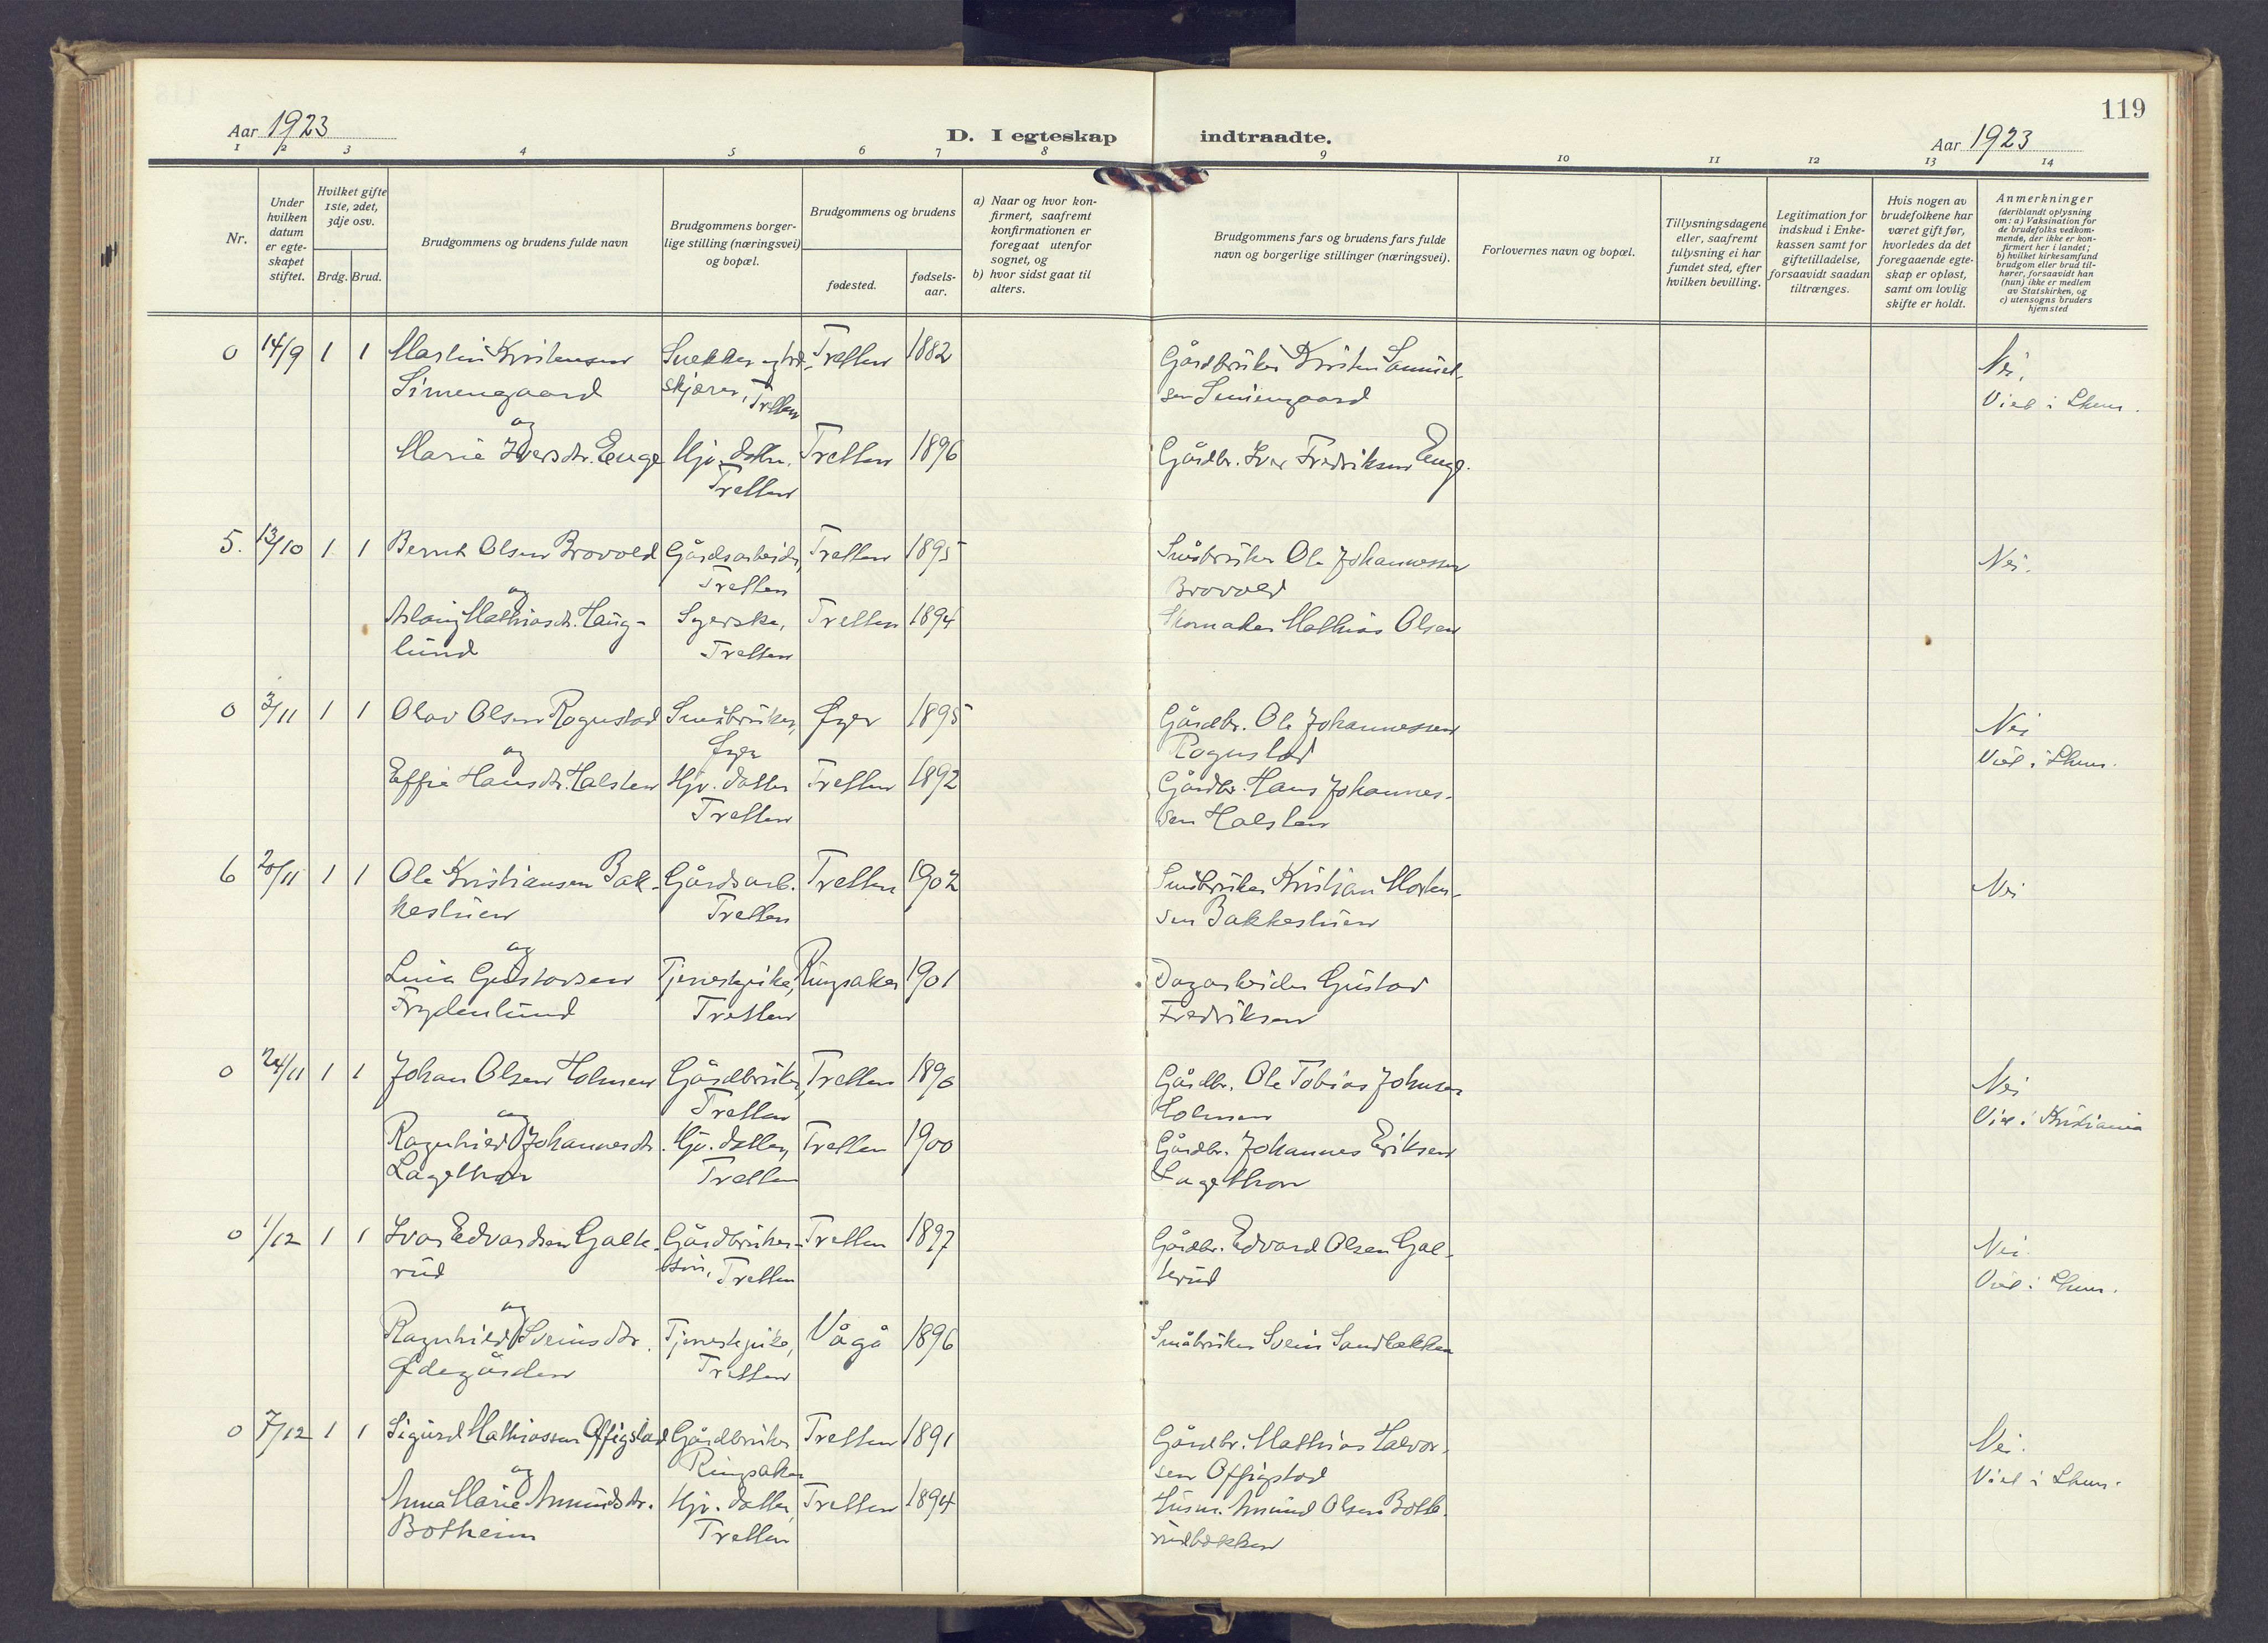 119
Aar 1923
D. I egteskap indtraadte.
Aar 1923
1 2 3 4 5 6 7 8 9 10 11 12 13 14
Nr.
Under
hvilken
datum
er egte-
skapet
stiftet.
Hvilket gifte
1ste, 2det,
3dje osv.
Brdg. Brud.
Brudgommens og brudens fulde navn
Brudgommens borger-
lige stilling (næringsvei)
og bopæl.
Brudgommens og brudens
fødested.
fødsels-
aar.
a) Naar og hvor kon-
firmert, saafremt
konfirmationen er
foregaat utenfor
sognet, og
b) hvor sidst gaat til
alters.
Brudgommens fars og brudens fars fulde
navn og borgerlige stillinger (næringsvei).
Forlovernes navn og bopæl.
Tillysningsdagene
eller, saafremt
tillysning ei har
fundet sted, efter
hvilken bevilling.
Legitimation for
indskud i Enke-
kassen samt for
giftetilladelse,
forsaavidt saadan
tiltrænges.
Hvis nogen av
brudefolkene har
været gift før,
hvorledes da det
foregaaende egte-
skap er opløst,
samt om lovlig
skifte er holdt.
Anmerkninger
(deriblandt oplysning
om: a) Vaksination for
de brudefolks vedkom-
mende, der ikke er kon-
firmert her i landet;
b) hvilket kirkesamfund
brudgom eller brud til-
hører, forsaavidt han
(hun) ikke er medlem
av Statskirken, og
c) utensogns bruders
hjemsted
0 14/9 1 1 Martin Kristensen Snekker og træ- Tretten 1882 Gårdbruker Kristen Samuel- Nei.
Simengaard skjærer, Tretten sen Simengaard Viet i Lhmr.
og
Marie Iversdtr. Enge Hjv. datter, Tretten 1896 Gårdbr. Iver Fredriksen Enge.
Tretten
5. 13/10 1 1 Bernt Olsen Brovold Gårdsarbeider, Tretten 1895 Småbruker Ole Johannessen Nei.
Tretten Brovold
og
Aslaug Mathiasdtr. Haug- Syerske, Tretten 1894 Skomaker Mathias Olsen
lund Tretten
0 3/11 1 1 Olav Olsen Rognstad Småbruker, Øyer 1895 Gårdbr. Ole Johannessen Nei
Øyer Rognstad Viet i Lhmr.
og
Effie Hansdtr. Halsten Hjv. datter Tretten 1892 Gårdbr. Hans Johannes-
Tretten sen Halsten
6 20/11 1 1 Ole Kristiansen Bak- Gårdsarb. Tretten 1902 Småbruker Kristian Morten- Nei
kestuen Tretten sen Bakkestuen
og
Lina Gustavsen Tjenestepike, Ringsaker 1901 Dagarbeider Gustav
Frydenlund Tretten Fredriksen
0 24/11 1 1 Johan Olsen Holmen Gårdbruker, Tretten 1896 Gårdbr. Ole Tobias Johnsen Nei
Tretten Holmen Viet i Kristiania
og
Ragnhild Johannesdtr. Hjv. datter, Tretten 1900 Gårdbr. Johannes Eriksen
Tretten
0 1/12 1 1 Ivar Edvardsen Galte- Gårdbruker- Tretten 1897 Gårdbr. Edvard Olsen Gal- Nei
rud søn, Tretten terud Viet i Lhmr.
og
Ragnhild Sveinsdtr. Tjenestepike, Vågå 1896 Småbruker Svein Sandbakken
Ødegården Tretten
0 7/12 1 1 Sigurd Mathiassen Offigstad Gårdbruker Tretten 1891 Gårdbr. Mathias Halvor- Nei.
Ringsaker sen Offigstad Viet i Lhmr.
og
Anna Marie Amundsdtr. Hjv. datter, Tretten 1894 Husm. Amund Olsen
Botheim Tretten